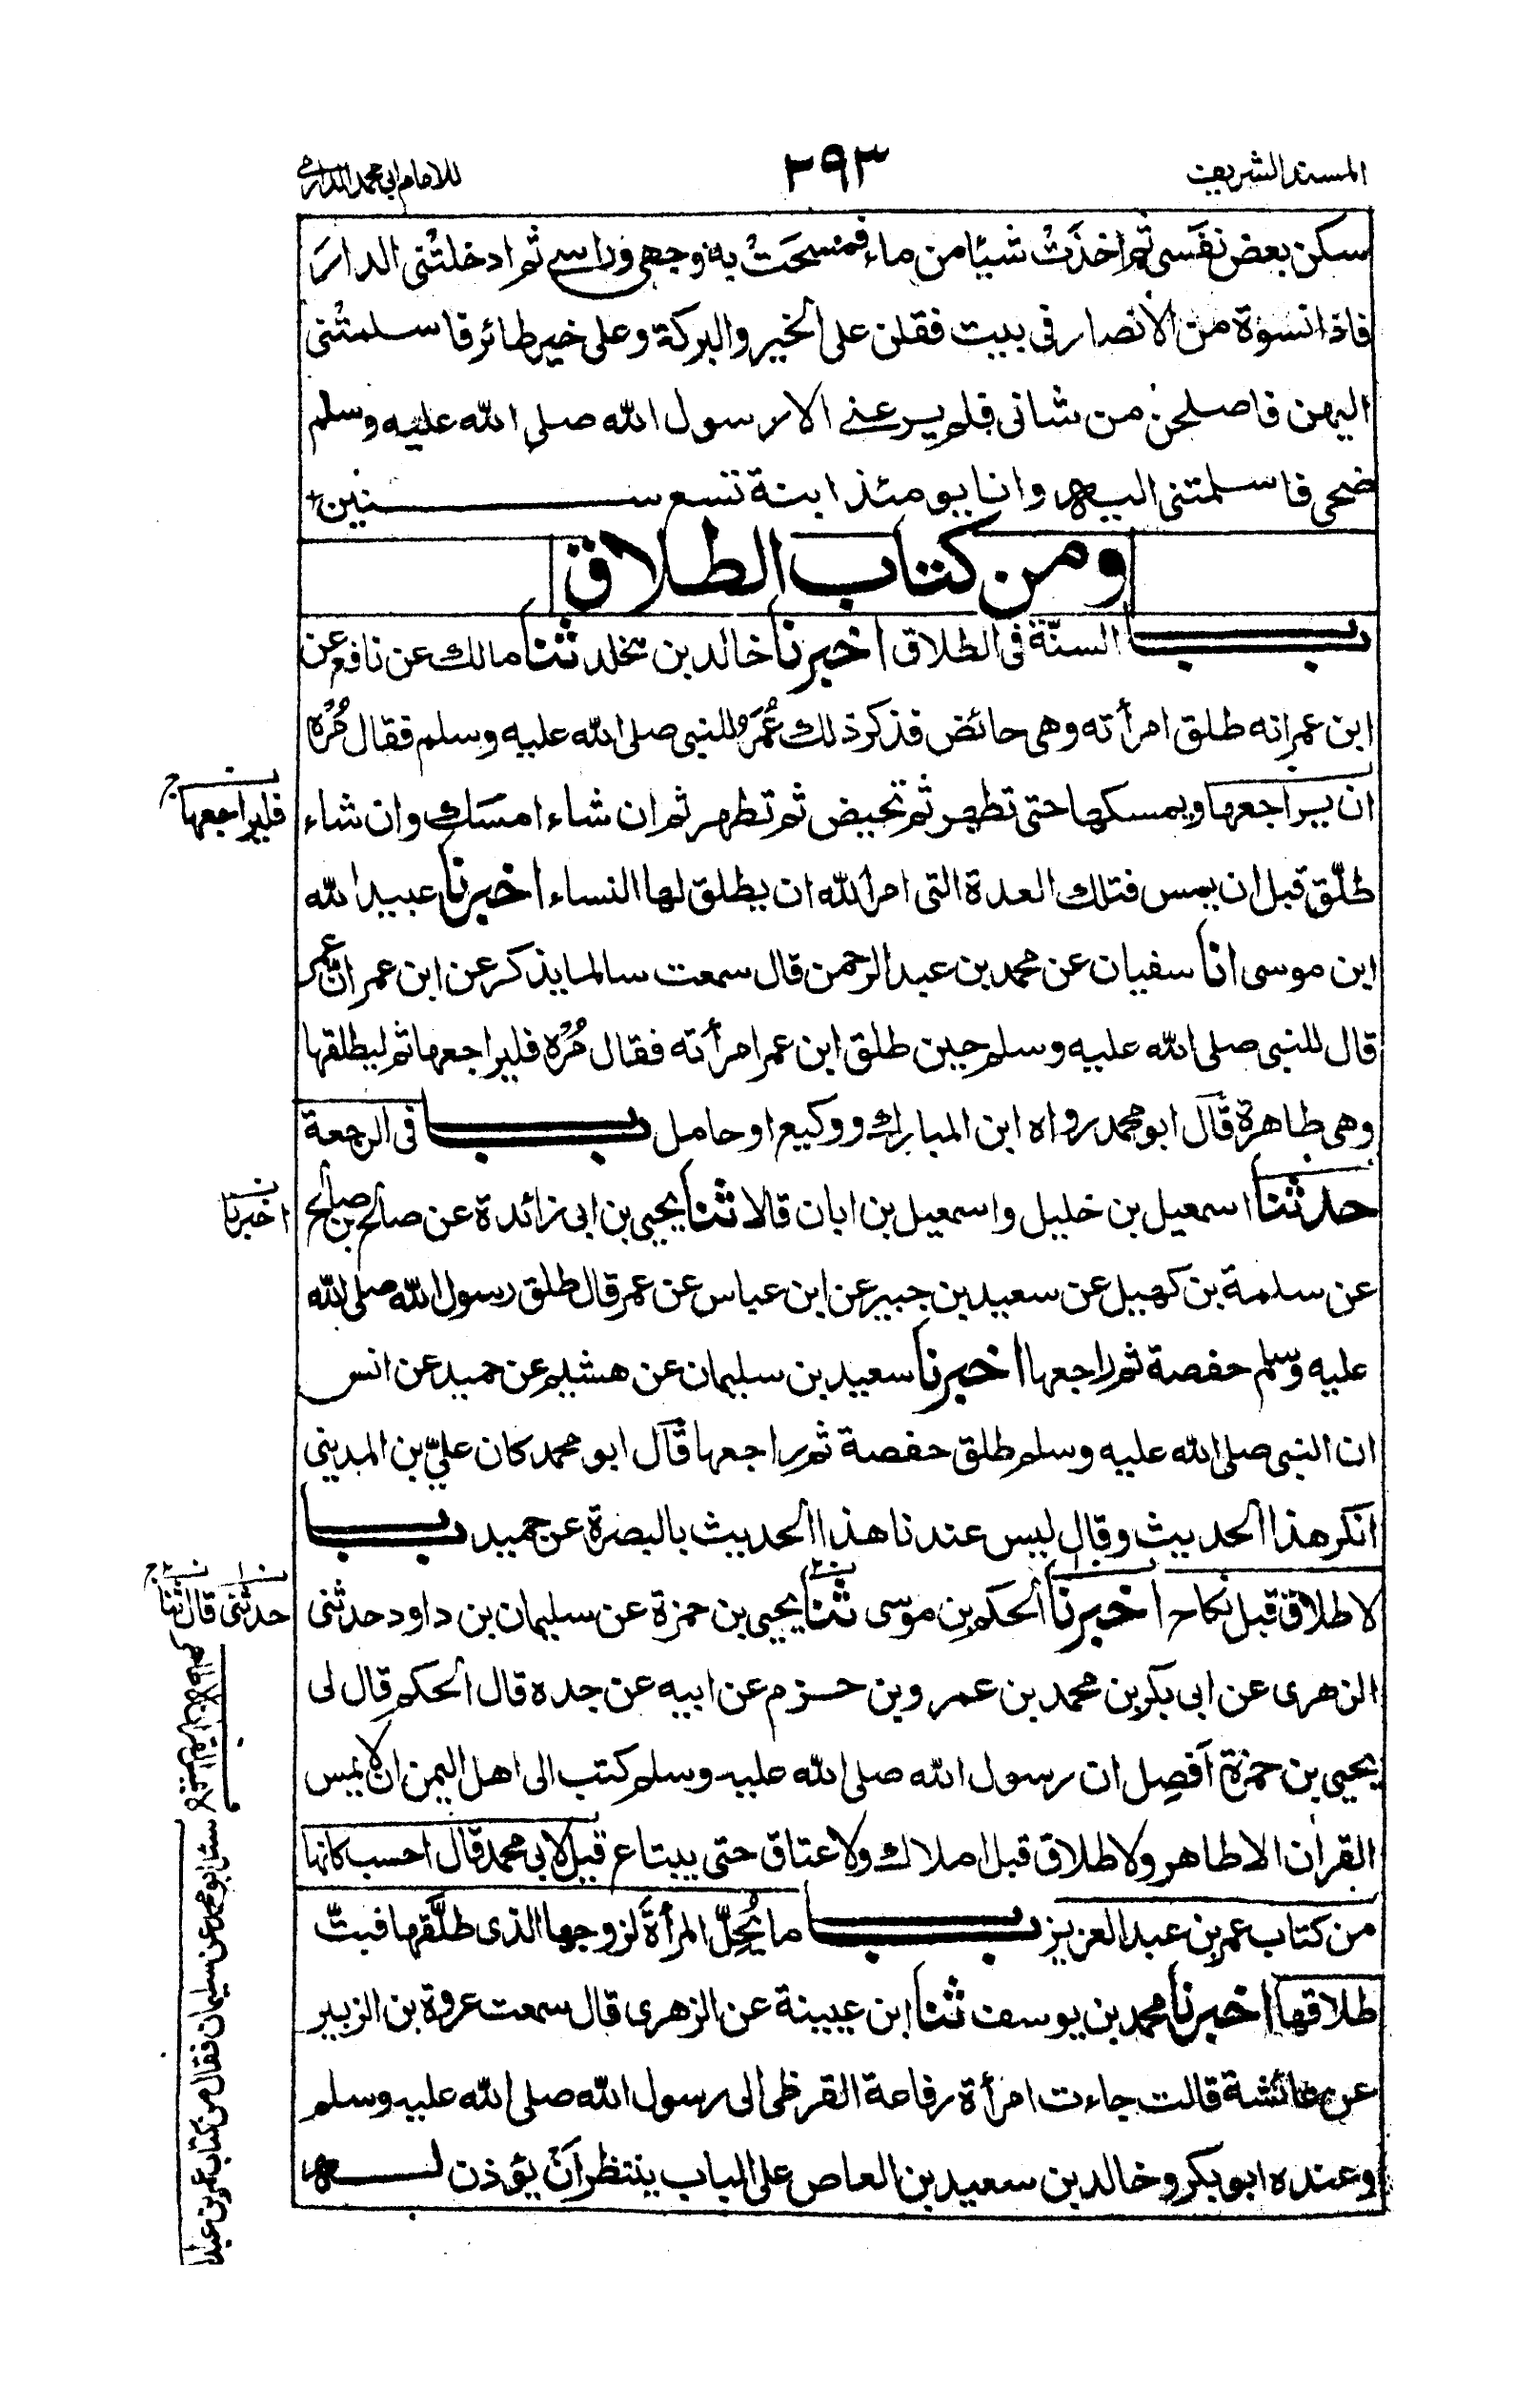 المسند الشريف ٢٩٣ للامام ابى محمد الدارمى
سكن بعض نفسى ثم اخذت شيئا من ماء فمسحت به وجهى وراسے ثم ادخلتنى الدار
فاذا نسوة من الأنصار فى بيت فقلن على الخير والبركة وعلى خير طائر فاسلمتنى
اليهن فاصلحن من شانى فلم يرعنے الا رسول الله صلى الله عليه وسلم
ضحى فاسلمتنى اليه وانا يومئذ ابنة تسع سنين
ومن كتاب الطلاق
باب السنّة فى الطلاق اخبرنا خالد بن مخلد ثنا مالك عن نافع عن
ابن عمر انه طلق امرأته وهى حائض فذكر ذلك عُمَرُ للنبى صلى الله عليه وسلم فقال مُرْه
ان يراجعها ويمسكها حتى تطهر ثم تحيض ثم تطهر ثم ان شاء امسَك وان شاء
فليراجعها
طلّق قبل ان يمس فتلك العدة التى امر الله ان يطلق لها النساء اخبرنا عبيد الله
ابن موسى انا سفيان عن محمد بن عبد الرحمن قال سمعت سالما يذكر عن ابن عمر انّ عمر
قال للنبى صلى الله عليه وسلم حين طلق ابن عمر امرأته فقال مُرْه فليراجعها ثم ليطلقها
وهى طاهرة قال ابو محمد رواه ابن المبارك ووكيع او حامل باب فى الرجعة
حدثنا اسمعيل بن خليل واسمعيل بن ابان قالا ثنا يحيى بن ابى زائدة عن صالح بن صالح
اخبرنا
عن سلمة بن كهيل عن سعيد بن جبير عن ابن عباس عن عمر قال طلق رسول الله صلى الله
عليه وسلم حفصة ثم راجعها اخبرنا سعيد بن سليمان عن هشيم عن حميد عن انس
ان النبى صلى الله عليه وسلم طلق حفصة ثم راجعها قال ابو محمد كان علىّ بن المدينى
انكر هذا الحديث وقال ليس عندنا هذا الحديث بالبصرة عن حميد باب
لا طلاق قبل نكاح اخبرنا الحكم بن موسى ثنا يحيى بن حمزة عن سليمان بن داود حدثنى
حدثنى قال ثنا
الزهرى عن ابى بكر بن محمد بن عمرو بن حزم عن ابيه عن جده قال الحكم قال لى
يحيى بن حمزة أفصِل ان رسول الله صلى الله عليه وسلم كتب الى اهل اليمن ان لا يمس
القران الا طاهر ولا طلاق قبل املاك ولا عتاق حتى يبتاع قيل لابى محمد قال احسب كانها
من كتاب عمر بن عبد العزيز باب ما يُحِلّ المرأةَ لزوجها الذى طلَّقها فبتّ
طلاقها اخبرنا محمد بن يوسف ثنا ابن عيينة عن الزهرى قال سمعت عروة بن الزبير
عن عائشة قالت جاءت امرأة رفاعة القرظى الى رسول الله صلى الله عليه وسلم
وعنده ابو بكر وخالد بن سعيد بن العاص على الباب ينتظر اَنْ يؤذن له
سئل ابو محمد عن سليمان فقال من كتاب عمر بن عبد